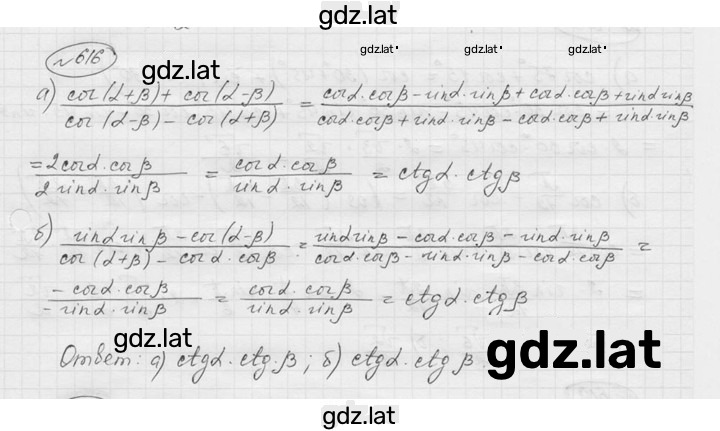 gdz.lat
gdz.lat gdz.lat gdz.lat
№616
gdz.lat
а) (cos(α+β) + cos(α-β))/(cos(α-β) - cos(α+β)) = (cosα·cosβ - sinα·sinβ + cosα·cosβ + sinα sinβ)/(cosα·cosβ + sinα·sinβ - cosα·cosβ + sinα·sinβ)
= (2cosα·cosβ)/(2sinα·sinβ) = (cosα·cosβ)/(sinα·sinβ) = ctgα·ctgβ
б) (sinα sinβ - cos(α-β))/(cos(α+β) - cosα·cosβ) = (sinα sinβ - cosα·cosβ - sinα·sinβ)/(cosα·cosβ - sinα·sinβ - cosα·cosβ) =
(-cosα·cosβ)/(-sinα·sinβ) = (cosα·cosβ)/(sinα·sinβ) = ctgα·ctgβ
gdz.lat
Ответ: а) ctgα·ctg·β; б) ctgα·ctgβ
gdz.lat
gdz.lat